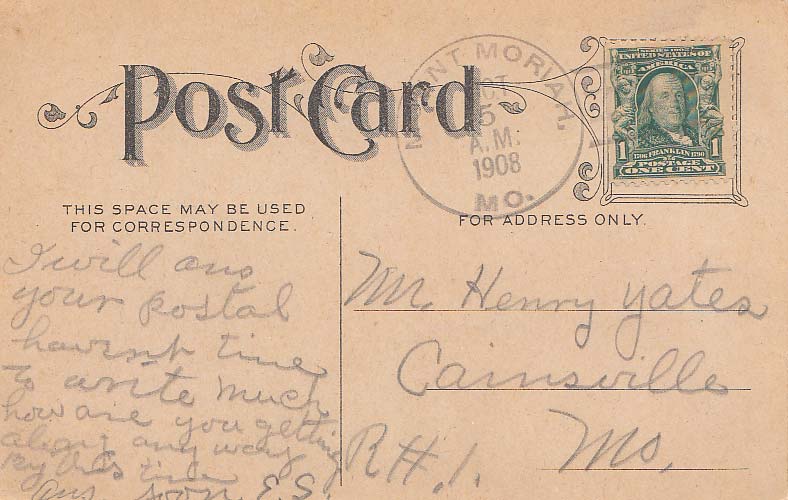 Post Card
MOUNT MORIAH,
OCT
5
A.M.
1908
MO.
SERIES 1902
UNITED STATES OF
AMERICA
1 1
1706 FRANKLIN 1790
POSTAGE
ONE CENT
THIS SPACE MAY BE USED
FOR CORRESPONDENCE.
FOR ADDRESS ONLY.
I will ans
your postal
havent time
to write much
how are you getting
along any way
by this time
ans soon E.S.
Mr. Henry Yates
Cainsville
Mo.
R#1.